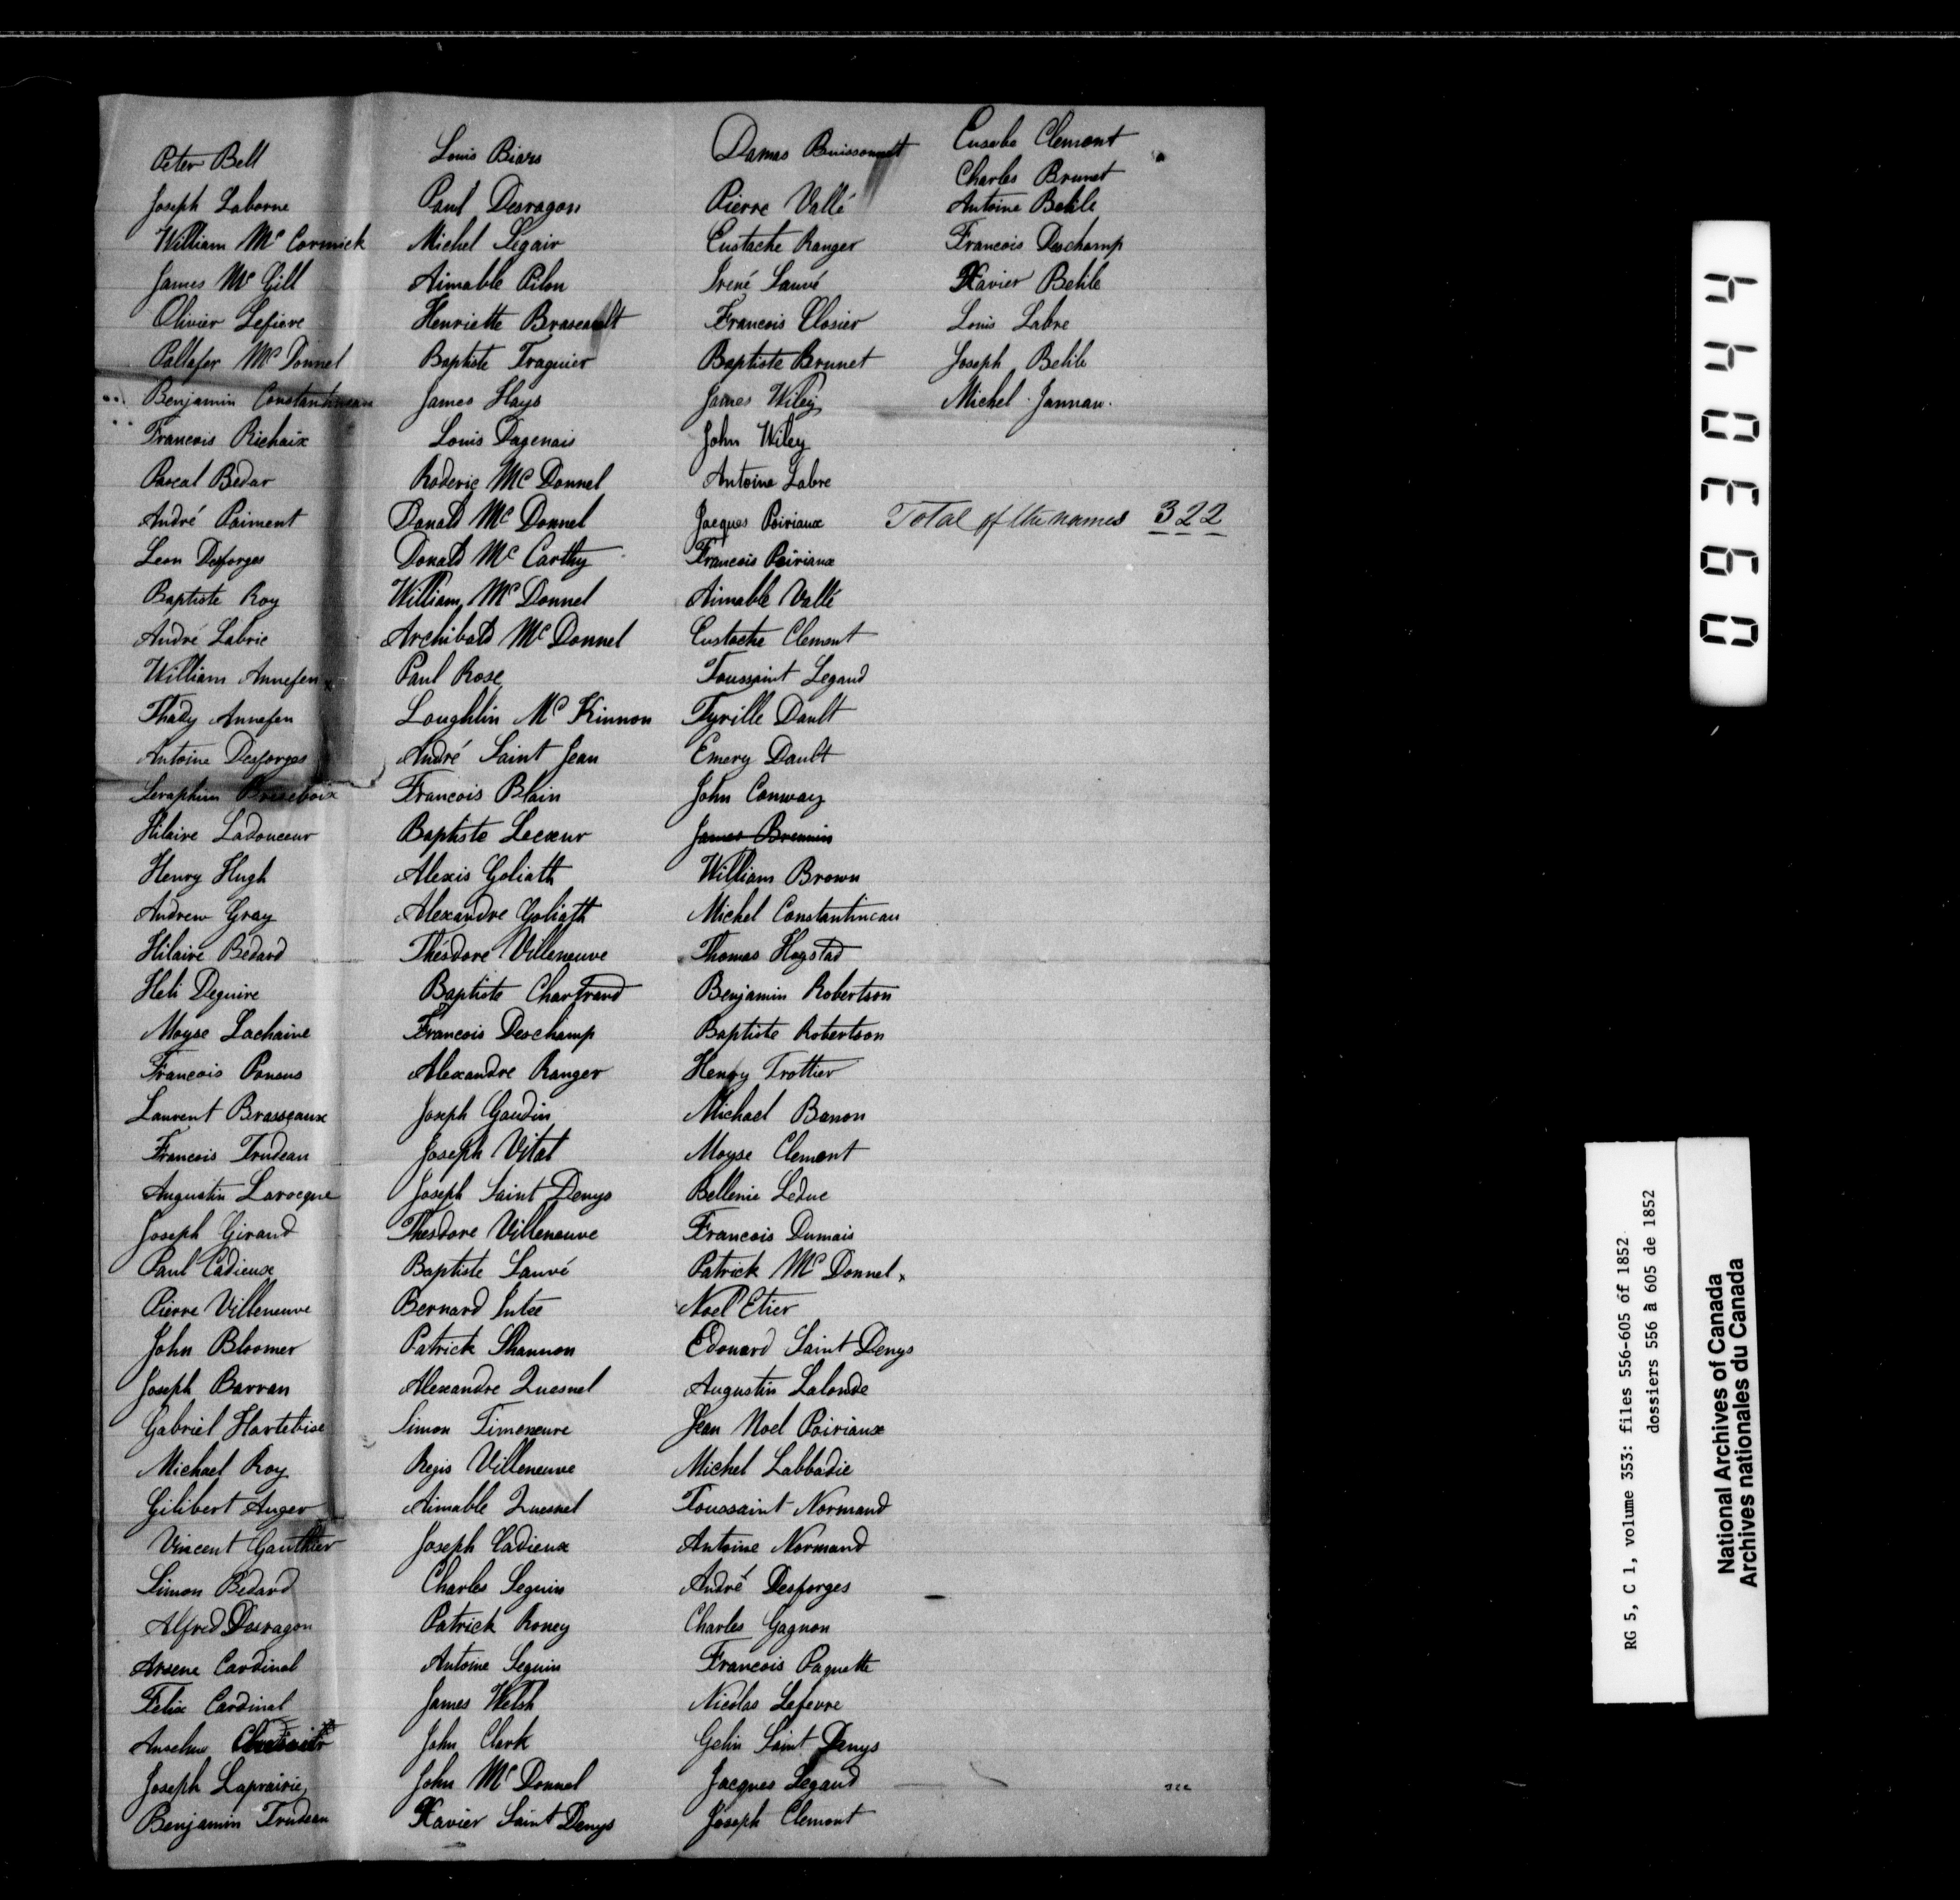 Peter Bell
Joseph Laborne
William Mc Cormick
James Mc Gill
Olivier Lefievre
Pallafer Mc Donnel
Benjamin Constantineau
Francois Richaix
Pascal Bedar
André Paiment
Leon Desforges
Baptiste Roy
André Labrie
William Annefen
Thady Annefen
Antoine Desforges
Seraphim Brisebois
Hilaire Ladouceur
Henry Hugh
Andrew Gray
Hilaire Bedard
Heli Deguire
Moyse Lachaine
Francois Panous
Laurent Brasseaux
Francois Trudeau
Augustin Larocque
Joseph Girard
Paul Cadieux
Pierre Villeneuve
John Bloomer
Joseph Barran
Gabriel Hartebise
Michael Roy
Gilibert Auger
Vincent Gauthier
Simon Bedard
Alfred Desragon
Arsene Cardinal
Felix Cardinal
Anselme
Joseph Laprairie
Benjamin Trudeau
Louis Biars
Paul Desragon
Michel Legair
Aimable Pilon
Henriette Braseault
Baptiste Traguier
James Hays
Louis Dagenais
Roderic Mc Donnel
Donald Mc Donnel
Donald Mc Carthy
William Mc Donnel
Archibald Mc Donnel
Paul Rose
Loughlin Mc Kinnon
André Saint Jean
Francois Blain
Baptiste Lecœur
Alexis Goliath
Alexandre Goliath
Théodore Villeneuve
Baptiste Chartrand
Francois Deschamp
Alexandre Ranger
Joseph Gaudin
Joseph Vital
Joseph Saint Denys
Théodore Villeneuve
Baptiste Sauvé
Bernard
Patrick Shannon
Alexandre Quesnel
Simon Timeneuve
Regis Villeneuve
Aimable Quesnel
Joseph Cadieux
Charles Seguin
Patrick Roney
Antoine Seguin
James Welsh
John Clark
John Mc Donnel
Xavier Saint Denys
Damas Buissonnett
Pierre Vallé
Eustache Ranger
Irené Sauvé
Francois Closier
Baptiste Brunet
James Wiley
John Wiley
Antoine Labre
Jacques Poiriaux
Francois Poiriaux
Aimable Vallé
Eustache Clement
Toussaint Legaud
Tyrille Dault
Emery Dault
John Conway
James Brennin
William Brown
Michel Constantineau
Thomas Hogstad
Benjamin Robertson
Baptiste Robertson
Henry Trottier
Michael Banon
Moyse Clement
Bellenie Leduc
Francois Dumais
Patrick Mc Donnel
Noel Etier
Edouard Saint Denys
Augustin Lalonde
Jean Noel Poiriaux
Michel Labbadie
Toussaint Normand
Antoine Normand
André Desforges
Charles Gagnon
Francois Paquette
Nicolas Lefevre
Gelin Saint Denys
Jacques Legaud
Joseph Clement
Eusebe Clement
Charles Brunet
Antoine Belile
Francois Deschamp
Xavier Belile
Louis Labre
Joseph Belile
Michel Jannau
Total of the names 322
322
036044
RG 5, C 1, volume 353: files 556-605 of 1852
dossiers 556 à 605 de 1852
National Archives of Canada
Archives nationales du Canada